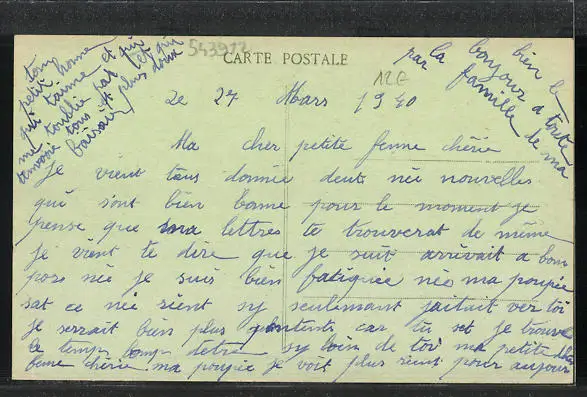 543912
CARTE POSTALE
12€
Le 27 Mars 1940
Ma cher petite fenne chérie
Je vient tous donnée deuts née nouvelles
qui sont bien bonne pour le moment je
pense que ma lettres te trouverat de même
je vient te dire que je suit arrivait a bon
pors née je suis bien fatiguée nes ma poupée
sat ce née rient sy seulemant jaitait ver toi
Je serrait bien plus contents car tu set je trouve
le temp long detre sy loin de toi ma petite
fenne chérie ma poupée je voit plus rient pour aujour
bien le
bonjour a toute
par la famille de ma
ton
petit homme
qui t'aime et
me toublie pas qui
tenvoie tous ses
baisais plus doux